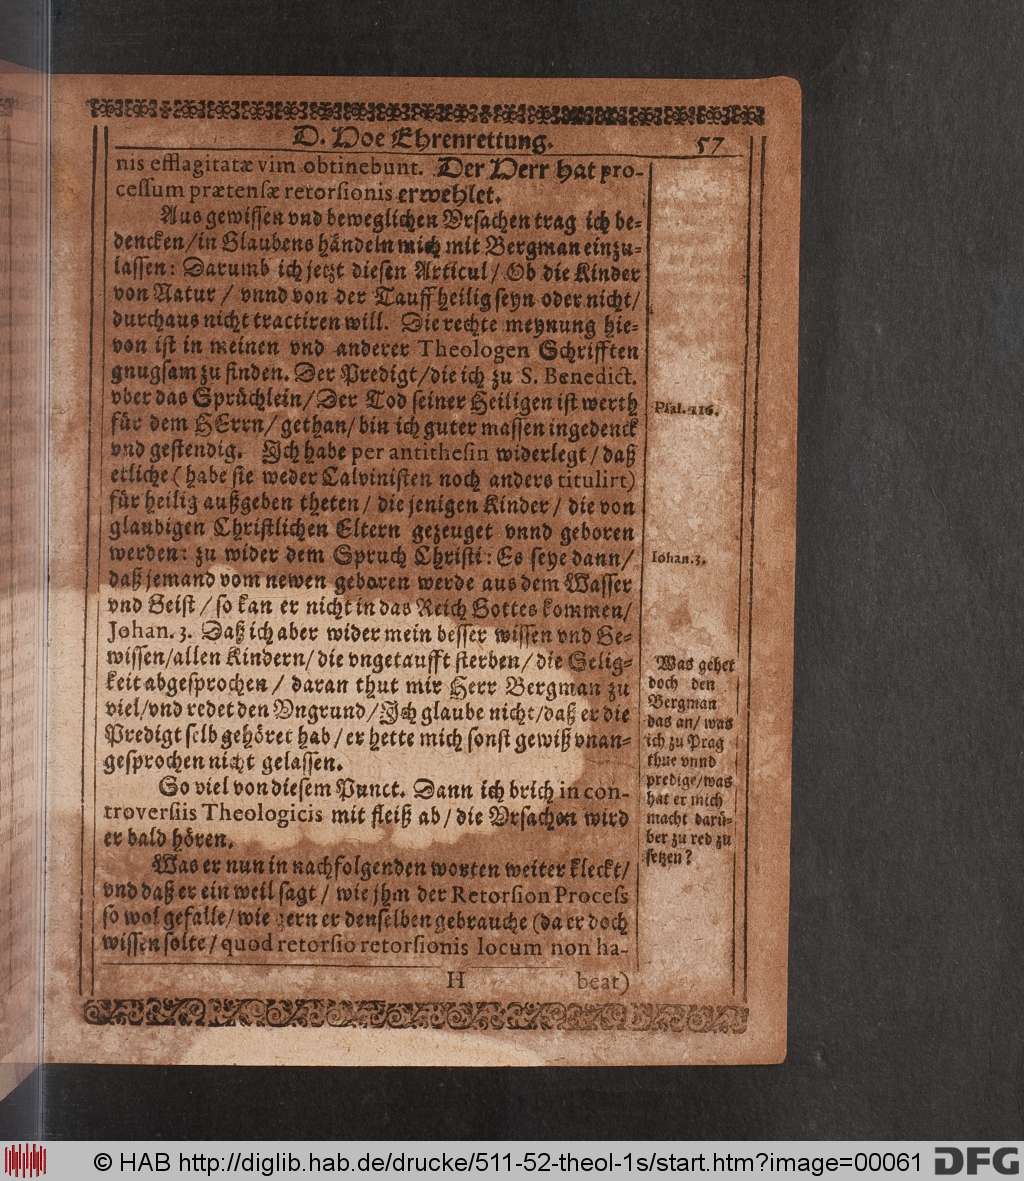 D. Hoe Ehrenrettung. 57
nis efflagitatæ vim obtinebunt. Der Herr hat pro-
cessum prætensæ retorsionis erwehlet.
Aus gewissen vnd beweglichen Vrsachen trag ich be-
dencken/in Glaubens händeln mich mit Bergman einzu-
lassen: Darumb ich jetzt diesen Articul/ Ob die Kinder
von Natur / vnnd von der Tauff heilig seyn oder nicht/
durchaus nicht tractiren will. Die rechte meynung hie-
von ist in meinen vnd anderer Theologen Schrifften
gnugsam zu finden. Der Predigt/die ich zu S. Benedict.
vber das Sprüchlein/Der Tod seiner Heiligen ist werth
für dem HErrn/ gethan/ bin ich guter massen ingedenck
vnd gestendig. Ich habe per antithesin widerlegt/ daß
etliche (habe sie weder Calvinisten noch anders titulirt)
für heilig außgeben theten/ die jenigen Kinder/ die von
glaubigen Christlichen Eltern gezeuget vnnd geboren
werden: zu wider dem Spruch Christi: Es seye dann/
daß jemand vom newen geboren werde aus dem Wasser
vnd Geist/so kan er nicht in das Reich Gottes kommen/
Johan. 3. Daß ich aber wider mein besser wissen vnd Ge-
wissen/allen Kindern/die vngetaufft sterben/die Selig-
keit abgesprochen/ daran thut mir Herr Bergman zu
viel/vnd redet den Vngrund/Ich glaube nicht/daß er die
Predigt selb gehöret hab/er hette mich sonst gewiß vnan-
gesprochen nicht gelassen.
So viel von diesem Punct. Dann ich brich in con-
troversiis Theologicis mit fleiß ab/die Vrsachen wird
er bald hören.
Was er nun in nachfolgenden worten weiter kleckt/
vnd daß er ein weil sagt/ wie jhm der Retorsion Process
so wol gefalle/wie gern er denselben gebrauche (da er doch
wissen solte/quod retorsio retorsionis locum non ha-
H beat)
Psal. 116.
Iohan. 3.
Was gehet
doch den
Bergman
das an/was
ich zu Prag
thue vnnd
predige/was
hat er mich
macht darü-
ber zu red zu
setzen?
© HAB http://diglib.hab.de/drucke/511-52-theol-1s/start.htm?image=00061
DFG